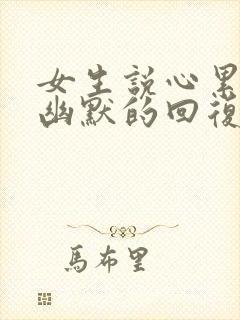 女生説心累
幽默的回復
馬布里